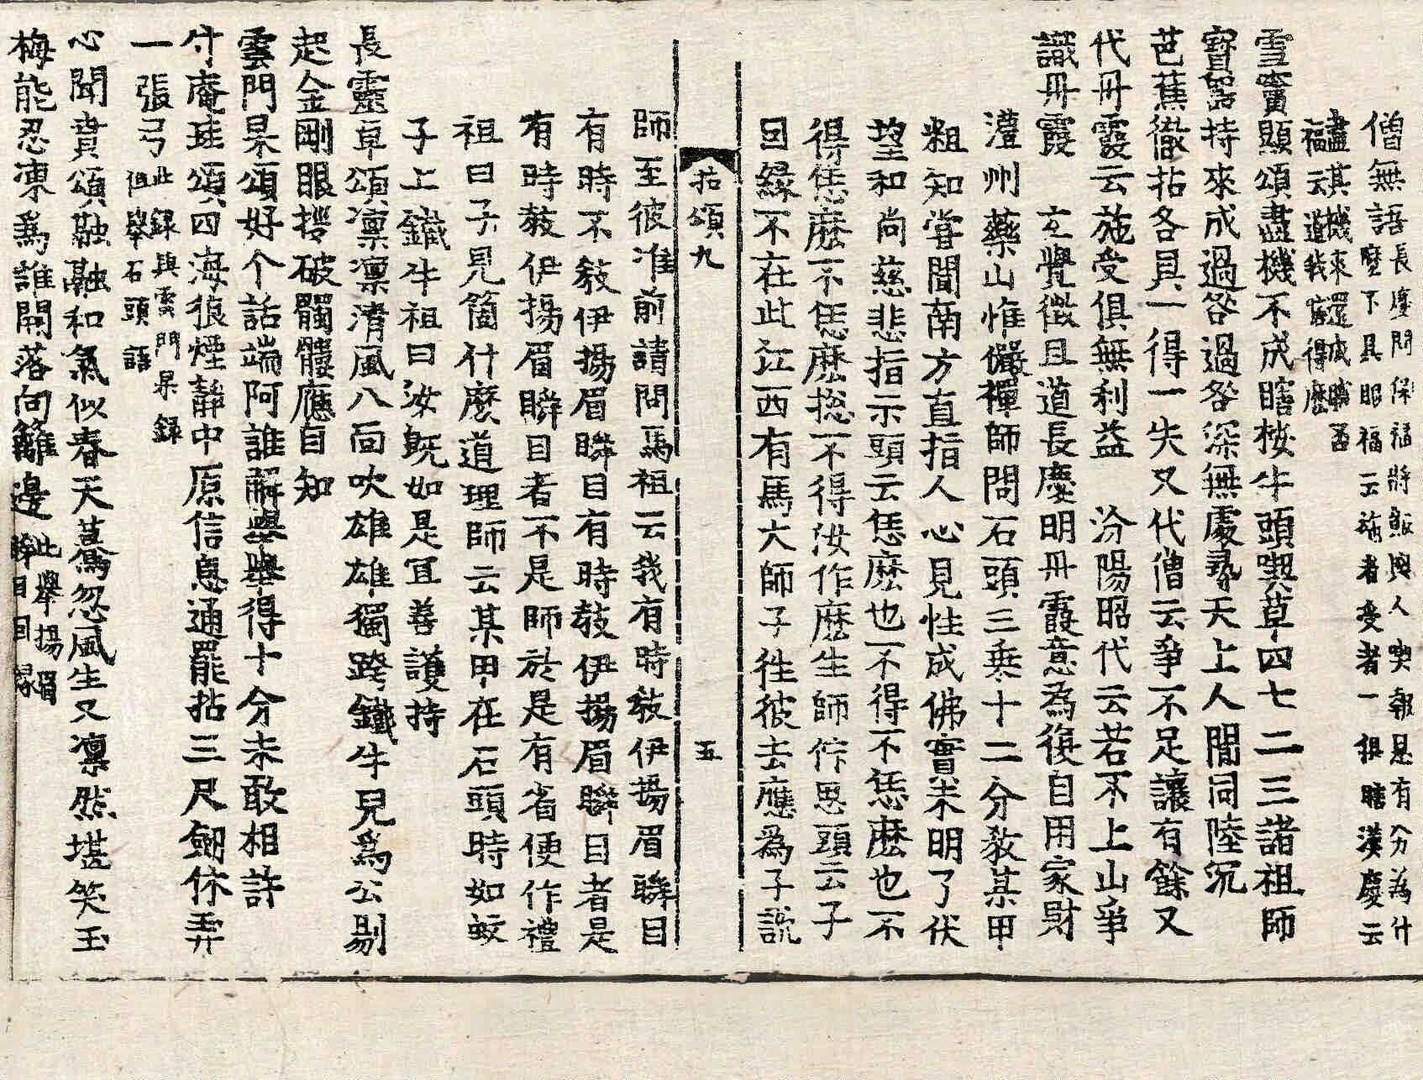 僧無語長慶問保福將飯與人喫報恩有分為什
麼下具眼福云施者受者二俱瞎漢慶云
盡其機來還成瞎否
福云道我瞎得麼
雪竇顯頌盡機不成瞎按牛頭喫草四七二三諸祖師
寶器持來成過咎過咎深無處尋天上人間同陸沉
芭蕉徹拈各具一得一失又代僧云爭不足讓有餘又
代丹霞云施受俱無利益 汾陽昭代云若不上山爭
識丹霞 玄覺徵且道長慶明丹霞意為復自用家財
澧州藥山惟儼禪師問石頭三乘十二分教某甲
粗知嘗聞南方直指人心見性成佛實未明了伏
望和尚慈悲指示頭云恁麼也不得不恁麼也不
得恁麼不恁麼揔不得汝作麼生師佇思頭云子
因緣不在此江西有馬大師子往彼去應為子說
拈頌九 五
師至彼准前請問馬祖云我有時教伊揚眉瞬目
有時不教伊揚眉瞬目有時教伊揚眉瞬目者是
有時教伊揚眉瞬目者不是師於是有省便作禮
祖曰子見箇什麼道理師云某甲在石頭時如蚊
子上鐵牛祖曰汝既如是宜善護持
長靈卓頌凛凛清風八面吹雄雄獨跨鐵牛兒為公剔
起金剛眼拶破髑髏應自知
雲門杲頌好个話端阿誰解擧擧得十分未敢相許
寸庵珪頌四海狼煙靜中原信息通罷拈三尺劒休弄
一張弓此錄與雲門杲錄
但擧石頭語
心聞賁頌融融和氣似春天驀忽風生又凛然堪笑玉
梅能忍凍為誰開落向籬邊此擧揚眉
瞬目因緣